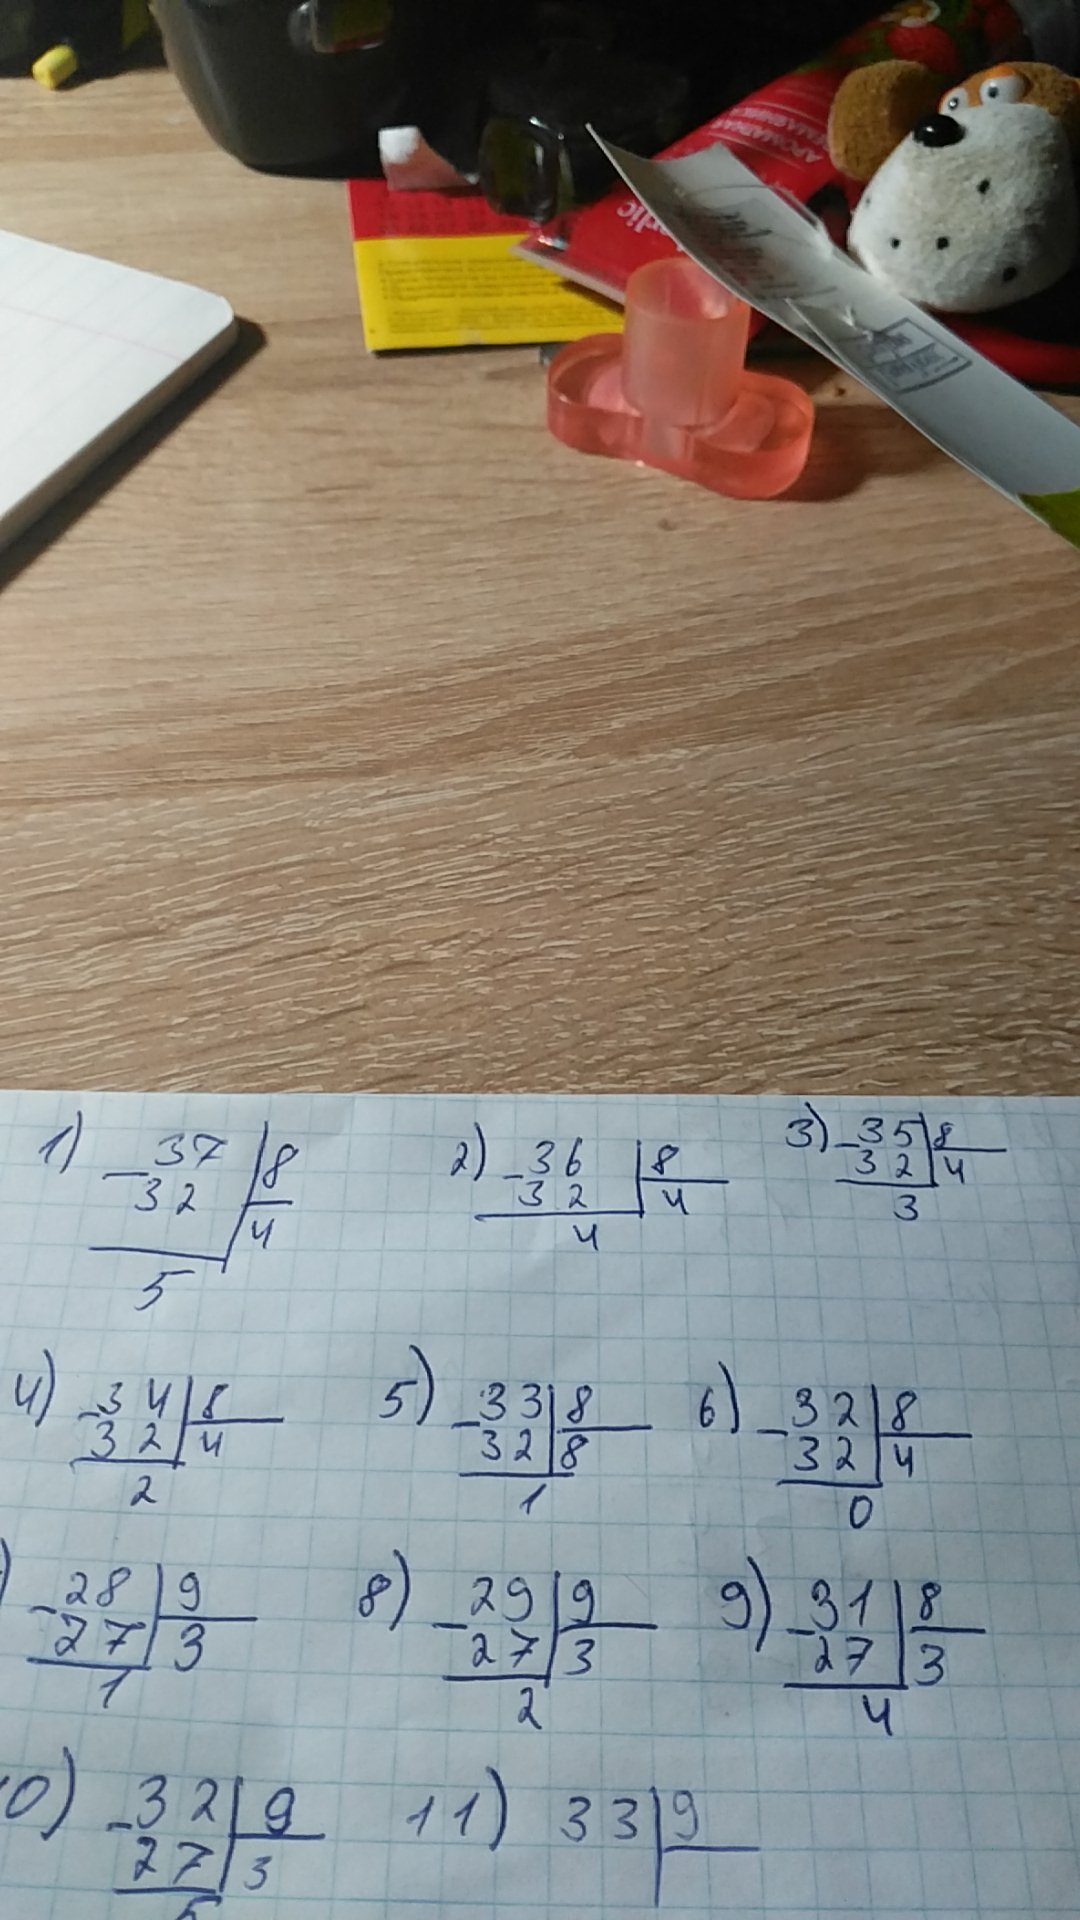 АРОМАТНАЯ
ЗЕМЛЯНИКА
1) -37 |8
32 |4
5
2) -36 |8
32 |4
4
3) -35 |8
32 |4
3
4) -34 |8
32 |4
2
5) -33 |8
32 |8
1
6) -32 |8
32 |4
0
) -28 |9
27 |3
1
8) -29 |9
27 |3
2
9) -31 |8
27 |3
4
10) -32 |9
27 |3
5
11) 33 |9